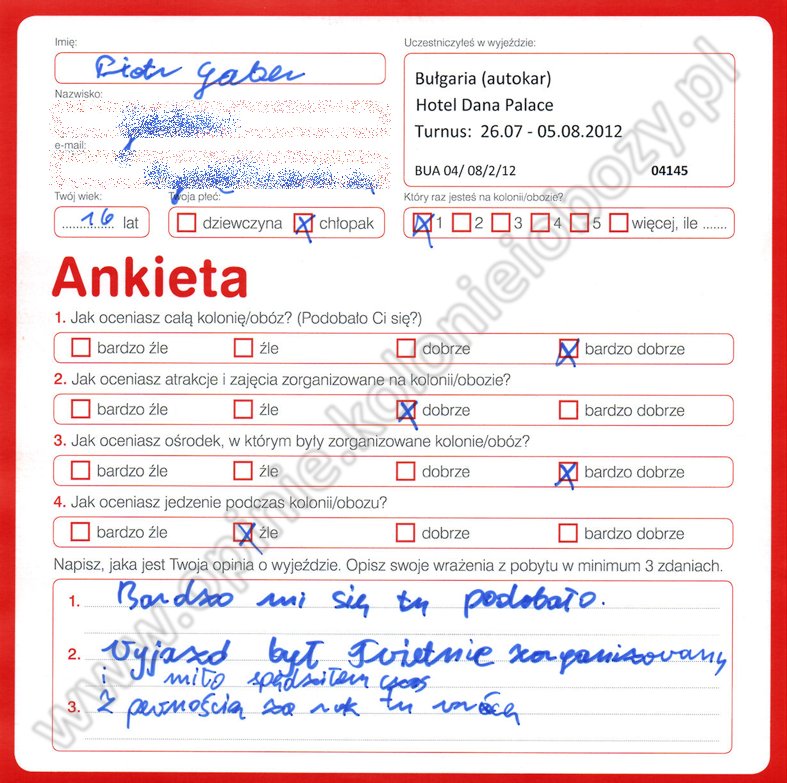 Imię:
Piotr Gaber
Uczestniczyłeś w wyjeździe:
Bułgaria (autokar)
Hotel Dana Palace
Turnus: 26.07 - 05.08.2012
BUA 04/ 08/2/12 04145
Nazwisko:
e-mail:
Twój wiek:
16 lat
Twoja płeć:
dziewczyna chłopak
Który raz jesteś na kolonii/obozie?
1 2 3 4 5 więcej, ile .......
Ankieta
1. Jak oceniasz całą kolonię/obóz? (Podobało Ci się?)
bardzo źle źle dobrze bardzo dobrze
2. Jak oceniasz atrakcje i zajęcia zorganizowane na kolonii/obozie?
bardzo źle źle dobrze bardzo dobrze
3. Jak oceniasz ośrodek, w którym były zorganizowane kolonie/obóz?
bardzo źle źle dobrze bardzo dobrze
4. Jak oceniasz jedzenie podczas kolonii/obozu?
bardzo źle źle dobrze bardzo dobrze
Napisz, jaka jest Twoja opinia o wyjeździe. Opisz swoje wrażenia z pobytu w minimum 3 zdaniach.
1. Bardzo mi się tu podobało.
2. Wyjazd był świetnie zorganizowany
i miło spędziłem czas
3. Z pewnością za rok tu wrócę
www.opinie.kolonieiobozy.pl